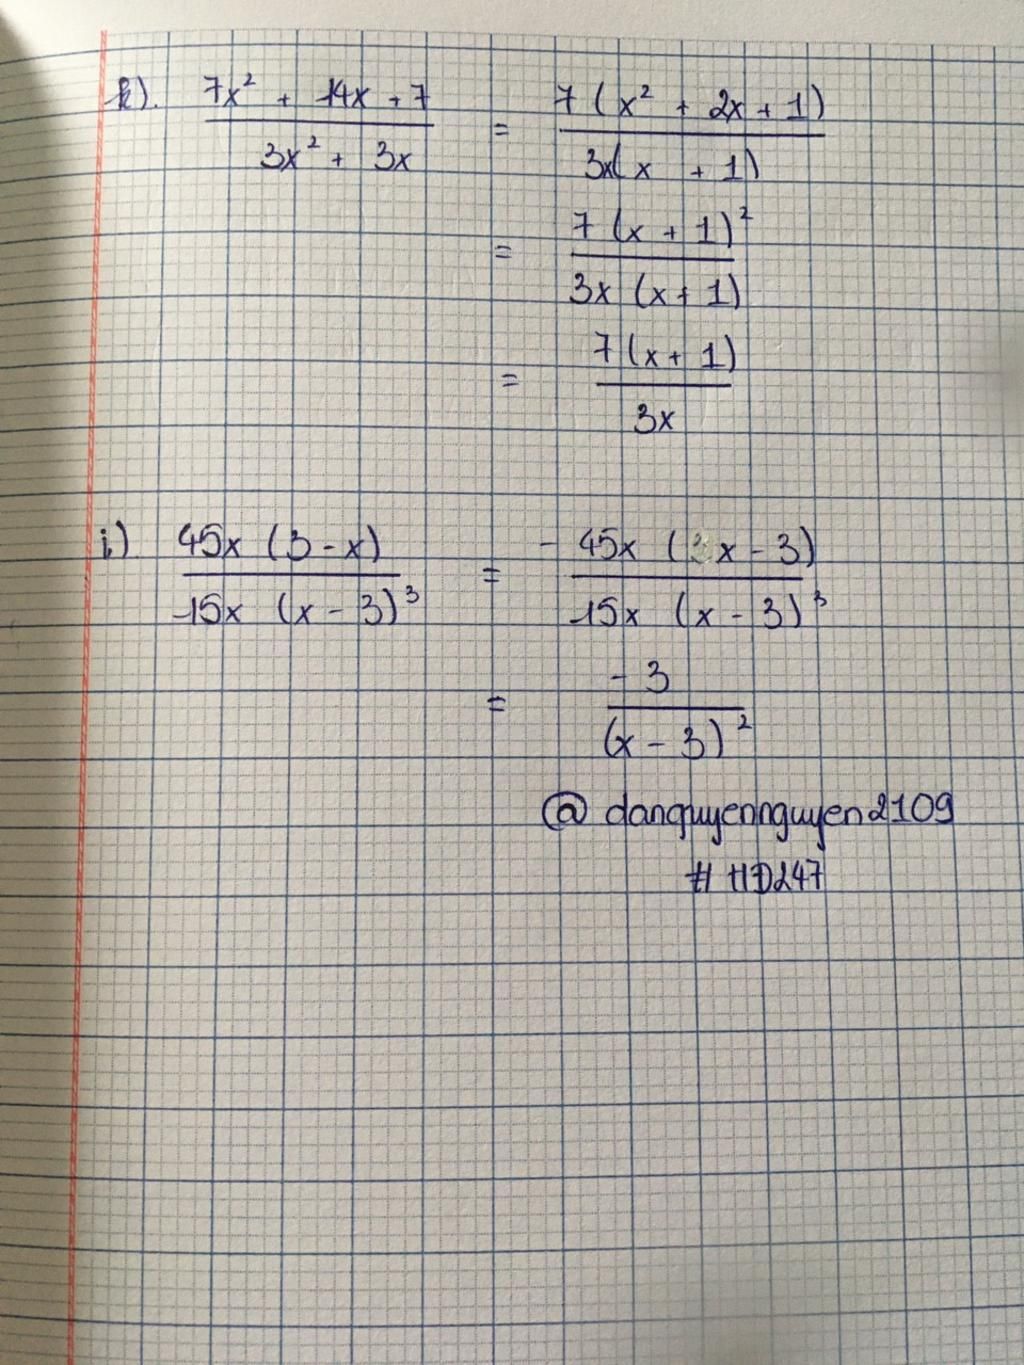 k). (7x² + 14x + 7)/(3x² + 3x) = (7(x² + 2x + 1))/(3x(x + 1))
= (7(x + 1)²)/(3x(x + 1))
= (7(x + 1))/(3x)
i) (45x(3 - x))/(15x(x - 3)³) = (-45x(x - 3))/(15x(x - 3)³)
= (-3)/((x - 3)²)
@danquyennguyen2109
#HD247